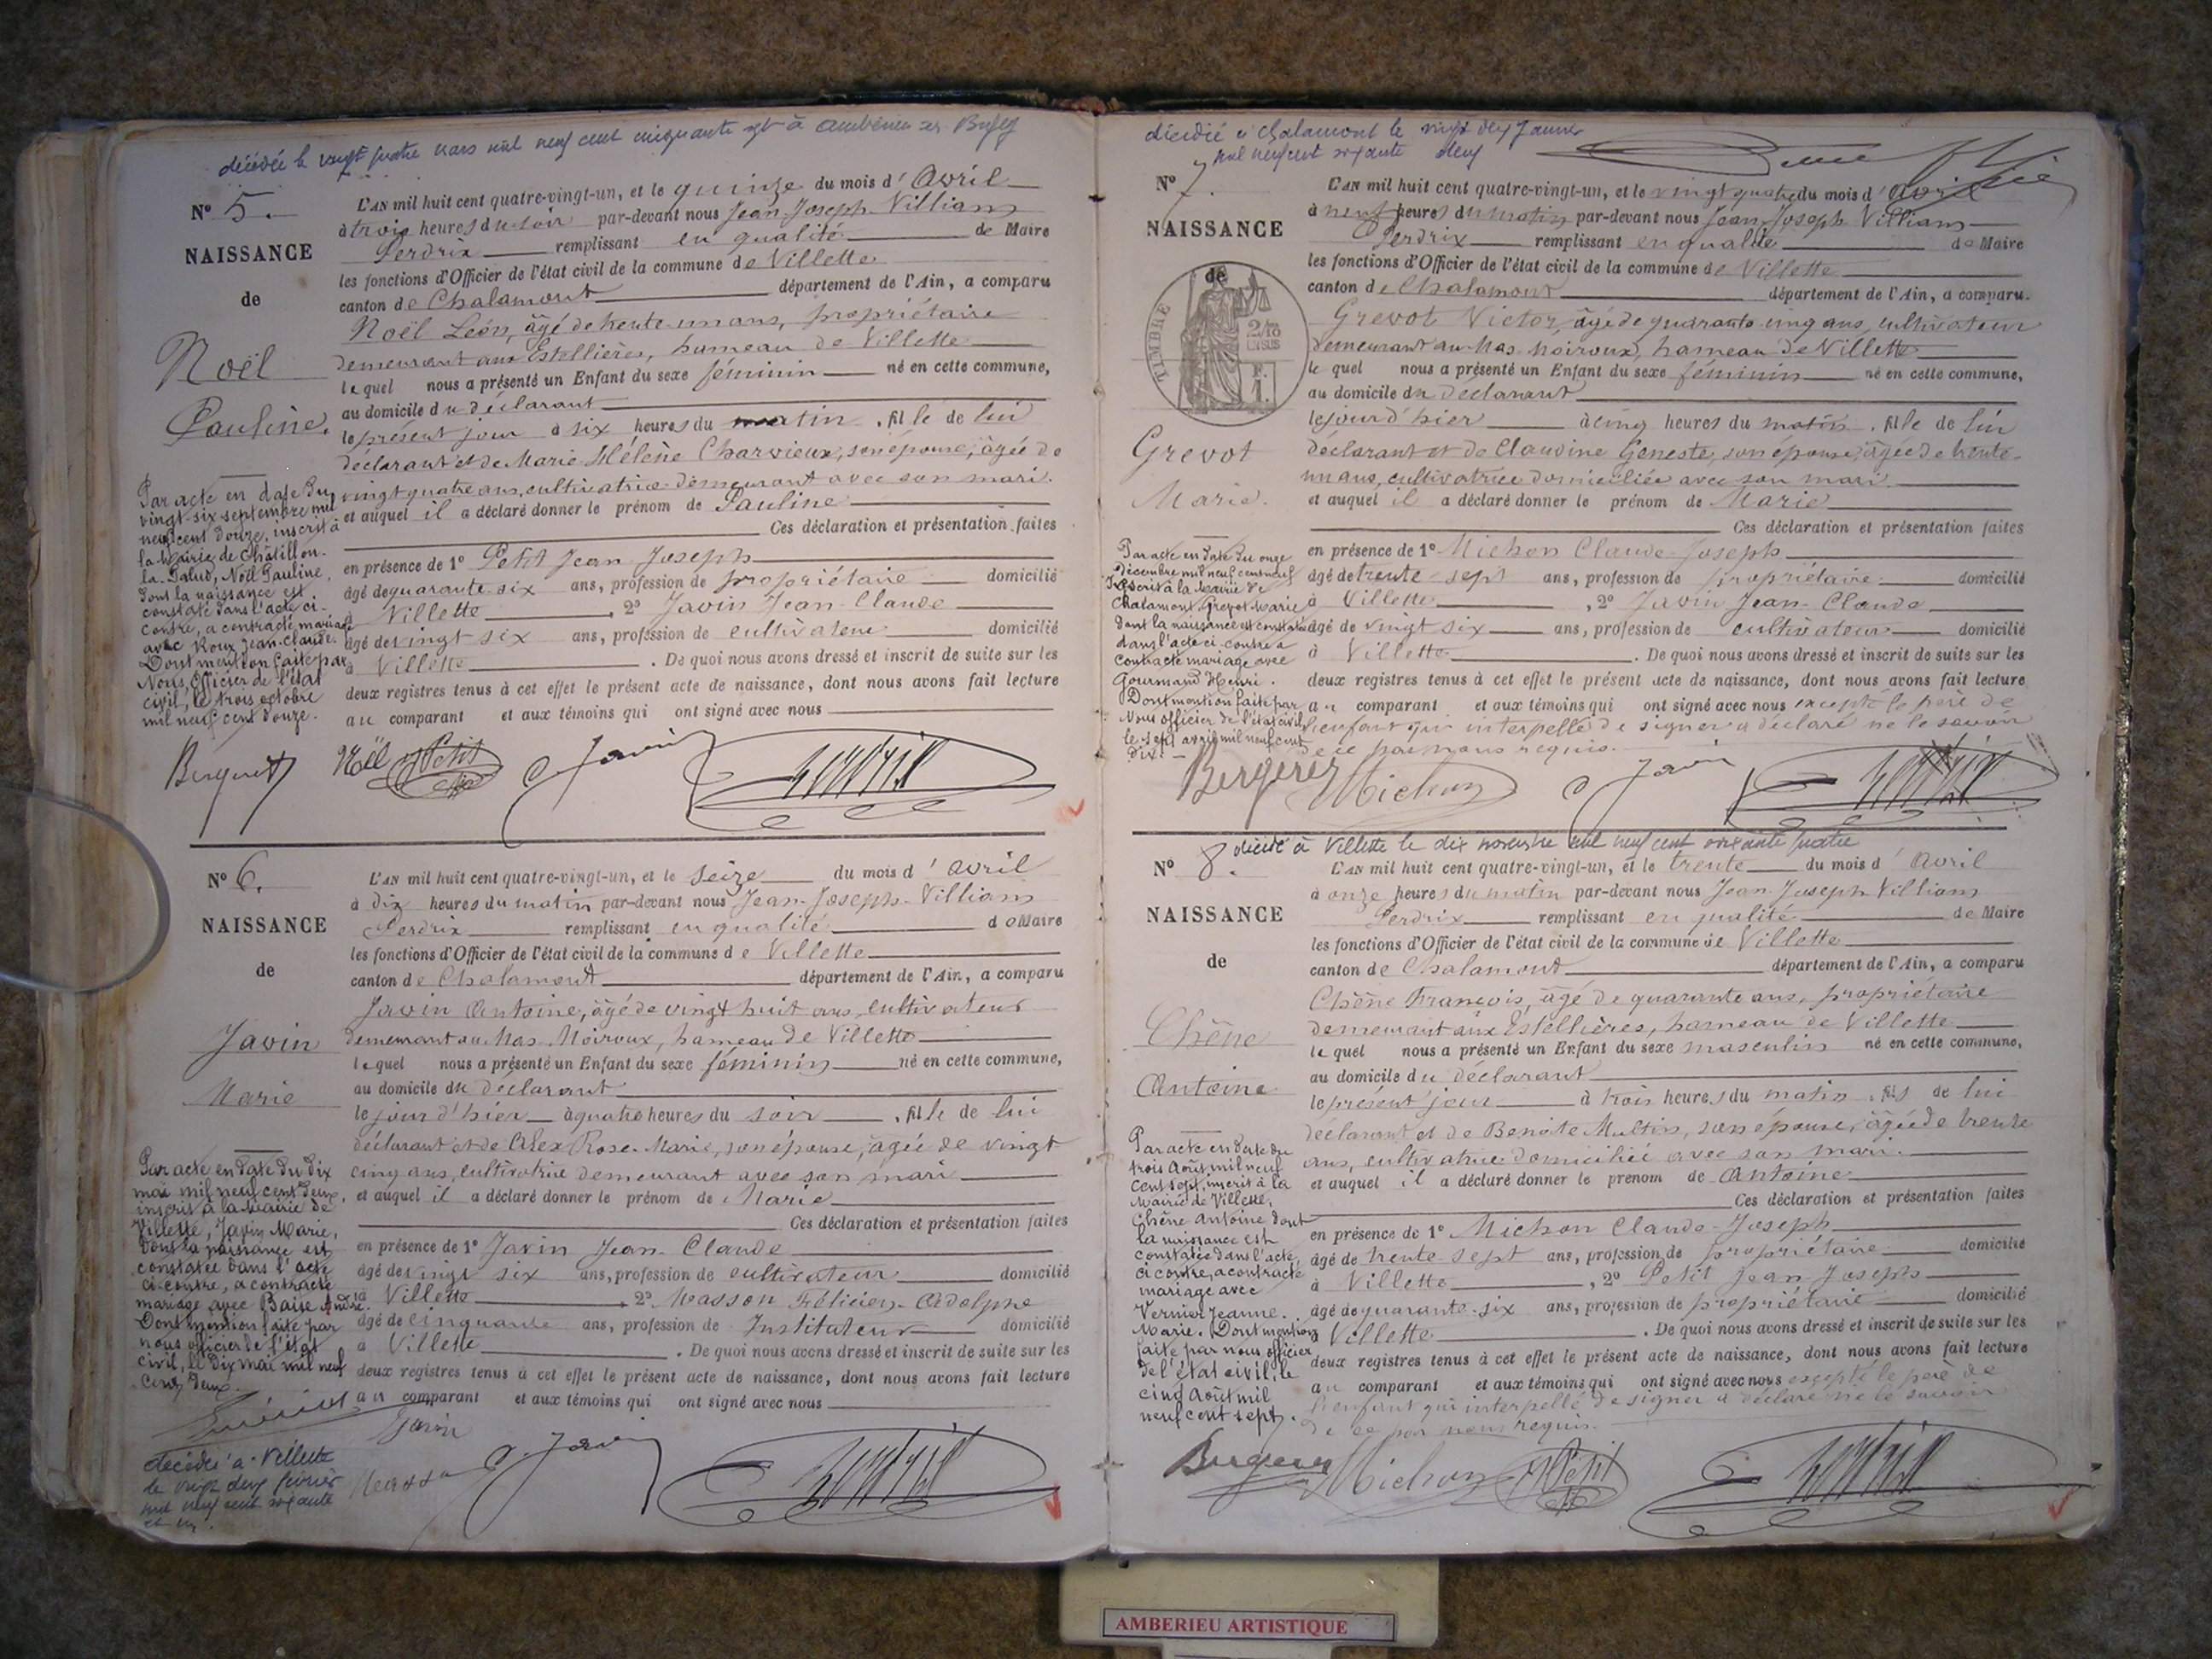 décédée le vingt quatre mars mil neuf cent cinquante sept à Ambérieu en Bugey
N° 5.
NAISSANCE
de
Noël
Pauline.
L'AN mil huit cent quatre-vingt-un, et le quinze du mois d'Avril
à trois heures du soir par-devant nous Jean-Joseph-Villiam
Perdrix remplissant en qualité de Maire
les fonctions d'Officier de l'état civil de la commune de Villette
canton de Chalamont département de l'Ain, a comparu
Noël Léon, âgé de trente-un ans, propriétaire
demeurant aux Estellières, hameau de Villette
lequel nous a présenté un Enfant du sexe féminin né en cette commune,
au domicile du déclarant
le présent jour à six heures du matin, fille de lui
déclarant et de Marie Hélène Charvieux, son épouse, âgée de
vingt quatre ans, cultivatrice demeurant avec son mari.
et auquel il a déclaré donner le prénom de Pauline
Ces déclaration et présentation faites
en présence de 1° Petit Jean Joseph
âgé de quarante six ans, profession de propriétaire domicilié
à Villette, 2° Javin Jean-Claude
âgé de vingt six ans, profession de cultivateur domicilié
à Villette. De quoi nous avons dressé et inscrit de suite sur les
deux registres tenus à cet effet le présent acte de naissance, dont nous avons fait lecture
au comparant et aux témoins qui ont signé avec nous
Par acte en date du
vingt-six septembre mil
neuf cent douze, inscrit à
la Mairie de Châtillon-
la-Palud, Noël Pauline,
dont la naissance est
constatée dans l'acte ci-
contre, a contracté mariage
avec Roux Jean-Claude.
Dont mention faite par
Nous, Officier de l'état
civil, le trois octobre
mil neuf cent douze.
Noël Petit Javin
N° 6.
NAISSANCE
de
Javin
Marie
L'AN mil huit cent quatre-vingt-un, et le seize du mois d'avril
à dix heures du matin par-devant nous Jean-Joseph-Villiam
Perdrix remplissant en qualité de Maire
les fonctions d'Officier de l'état civil de la commune de Villette
canton de Chalamont département de l'Ain, a comparu
Javin Antoine, âgé de vingt huit ans, cultivateur
demeurant au Mas Moiroux, hameau de Villette
lequel nous a présenté un Enfant du sexe féminin né en cette commune,
au domicile du déclarant
le jour d'hier à quatre heures du soir, fille de lui
déclarant et de Alex Rose-Marie, son épouse, âgée de vingt
cinq ans, cultivatrice demeurant avec son mari
et auquel il a déclaré donner le prénom de Marie
Ces déclaration et présentation faites
en présence de 1° Javin Jean-Claude
âgé de vingt six ans, profession de cultivateur domicilié
à Villette, 2° Masson Félicien-Adolphe
âgé de cinquante ans, profession de Instituteur domicilié
à Villette. De quoi nous avons dressé et inscrit de suite sur les
deux registres tenus à cet effet le présent acte de naissance, dont nous avons fait lecture
au comparant et aux témoins qui ont signé avec nous
Par acte en date du dix
mai mil neuf cent deux,
inscrit à la Mairie de
Villette, Javin Marie,
dont la naissance est
constatée dans l'acte
ci-contre, a contracté
mariage avec Baise André.
Dont mention faite par
nous officier de l'état
civil, le dix mai mil neuf
cent deux.
décédée à Villette
le vingt deux février
mil neuf cent soixante
et un.
Javin Masson Javin
décédée à Chalamont le vingt deux Janvier
mil neuf cent soixante deux
N° 7.
NAISSANCE
de
TIMBRE
2/10
EN SUS
Grevot
Marie.
L'AN mil huit cent quatre-vingt-un, et le vingt quatre du mois d'avril
à neuf heures du matin par-devant nous Jean Joseph Villiam
Perdrix remplissant en qualité de Maire
les fonctions d'Officier de l'état civil de la commune de Villette
canton de Chalamont département de l'Ain, a comparu.
Grevot Victor, âgé de quarante cinq ans, cultivateur
demeurant au Mas-Moiroux, hameau de Villette
lequel nous a présenté un Enfant du sexe féminin né en cette commune,
au domicile du déclarant
le jour d'hier à cinq heures du matin, fille de lui
déclarant et de Claudine Geneste, son épouse, âgée de trente-
un ans, cultivatrice domiciliée avec son mari
et auquel il a déclaré donner le prénom de Marie
Ces déclaration et présentation faites
en présence de 1° Michon Claude-Joseph
âgé de trente-sept ans, profession de propriétaire domicilié
à Villette, 2° Javin Jean-Claude
âgé de vingt six ans, profession de cultivateur domicilié
à Villette. De quoi nous avons dressé et inscrit de suite sur les
deux registres tenus à cet effet le présent acte de naissance, dont nous avons fait lecture
au comparant et aux témoins qui ont signé avec nous excepté le père de
l'enfant qui interpellé de signer a déclaré ne le savoir
de ce par nous requis.
Par acte en date du onze
Décembre mil neuf cent neuf
Inscrit à la Mairie de
Chalamont, Grevot Marie
dont la naissance est constatée
dans l'acte ci-contre a
contracté mariage avec
Gourmand Henri.
Dont mention faite par
Nous officier de l'état civil
le sept avril mil neuf cent
dix.
Michon Javin
décédé à Villette le dix novembre mil neuf cent soixante quatre
N° 8.
NAISSANCE
de
Chêne
Antoine
L'AN mil huit cent quatre-vingt-un, et le trente du mois d'avril
à onze heures du matin par-devant nous Jean-Joseph Villiam
Perdrix remplissant en qualité de Maire
les fonctions d'Officier de l'état civil de la commune de Villette
canton de Chalamont département de l'Ain, a comparu
Chêne François, âgé de quarante ans, propriétaire
demeurant aux Estellières, hameau de Villette
lequel nous a présenté un Enfant du sexe masculin né en cette commune,
au domicile du déclarant
le présent jour à trois heures du matin, fils de lui
déclarant et de Benoîte Multin, son épouse, âgée de trente
ans, cultivatrice domiciliée avec son mari.
et auquel il a déclaré donner le prénom de Antoine
Ces déclaration et présentation faites
en présence de 1° Michon Claude-Joseph
âgé de trente sept ans, profession de propriétaire domicilié
à Villette, 2° Petit Jean Joseph
âgé de quarante-six ans, profession de propriétaire domicilié
à Villette. De quoi nous avons dressé et inscrit de suite sur les
deux registres tenus à cet effet le présent acte de naissance, dont nous avons fait lecture
au comparant et aux témoins qui ont signé avec nous excepté le père de
l'enfant qui interpellé de signer a déclaré ne le savoir
de ce par nous requis.
Par acte en date du
trois Août mil neuf
cent sept, inscrit à la
Mairie de Villette,
Chêne Antoine dont
la naissance est
constatée dans l'acte
ci contre, a contracté
mariage avec
Vernier Jeanne-
Marie. Dont mention
faite par nous officier
de l'état civil, le
cinq Août mil
neuf cent sept.
Michon Petit
AMBERIEU ARTISTIQUE